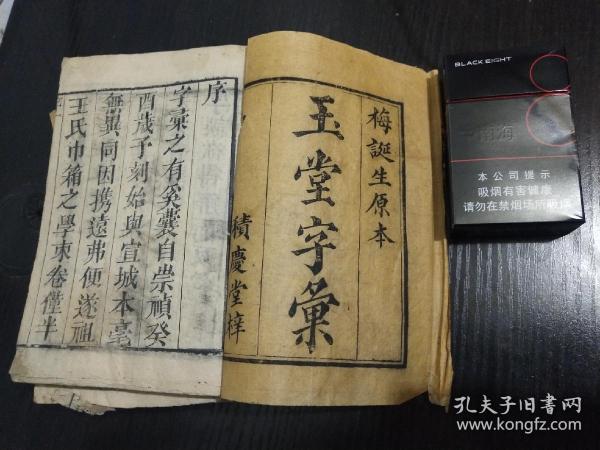 梅誕生原本
玉堂字彙
積慶堂梓
序
字彙之有奚囊自崇禎癸
酉歳予刻始與宣城本毫
無異同因携遠弗便遂祖
王氏巾箱之學東卷僅半
BLACK EIGHT
本公司提示
吸烟有害健康
请勿在禁烟场所吸烟
孔夫子旧书网
www.kongfz.com